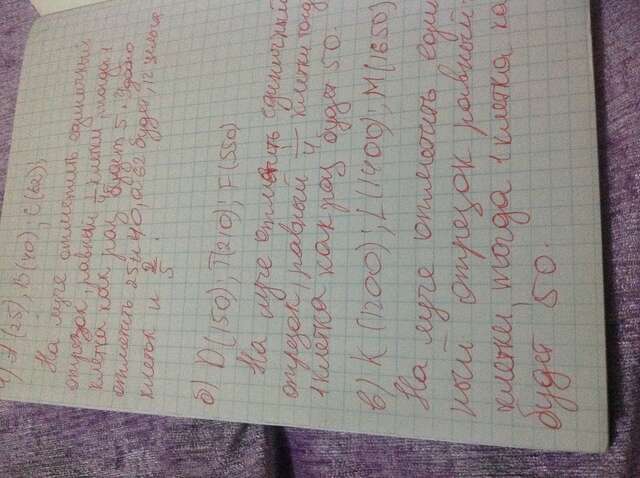 а) A(25), B(40); C(62),
На луче отметить единичный
отрезок, равный клетки, тогда 1
клетка как раз будет 5. Удобно
отметить 25 и 40, а 62 будет, 12 целых
клеток и 2/5.
б) D(150); T(210); F(550)
На луче отметить единичный
отрезок, равный клетки тогд
1 клетка как раз будет 50.
в) K (1200); L(1400); M(1650)
На луче отметить един
ный отрезок равный
клетки, тогда 1 клетка ка
будет 50.